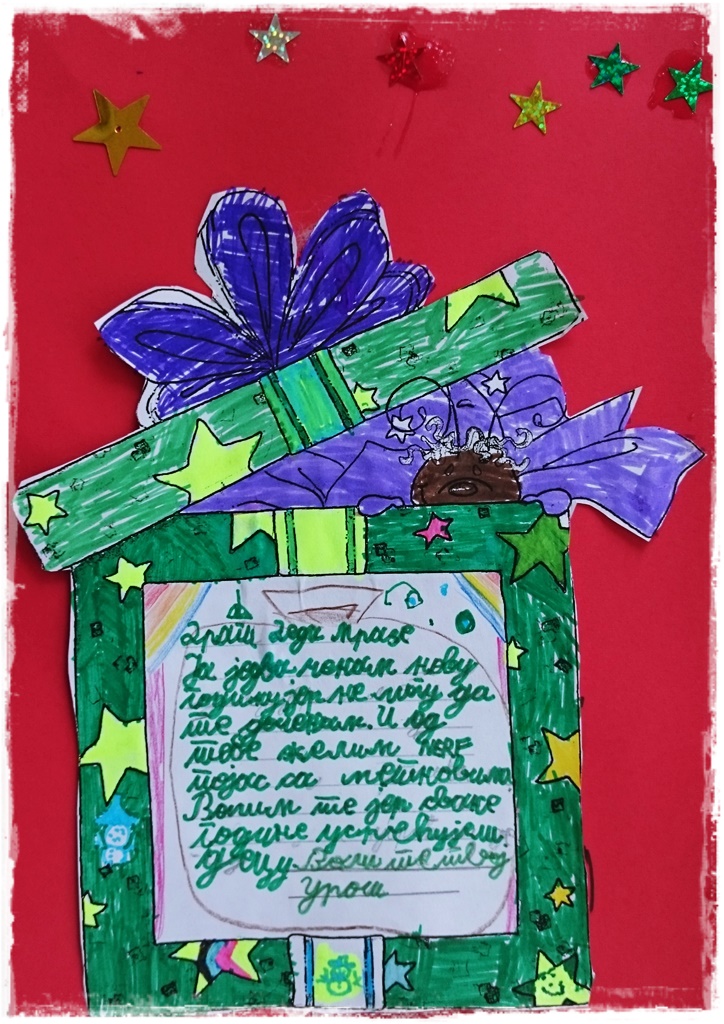 Драги Деда Мразе
Ја једва чекам нову
годину јер не могу да
те дочекам. И од
тебе желим NERF
појас са метковима
Волим те јер сваке
године усрећујеш
децу. Воли те твој
Урош